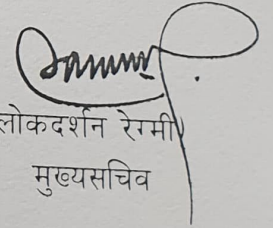 लोकदर्शन रेग्मी
मुख्यसचिव